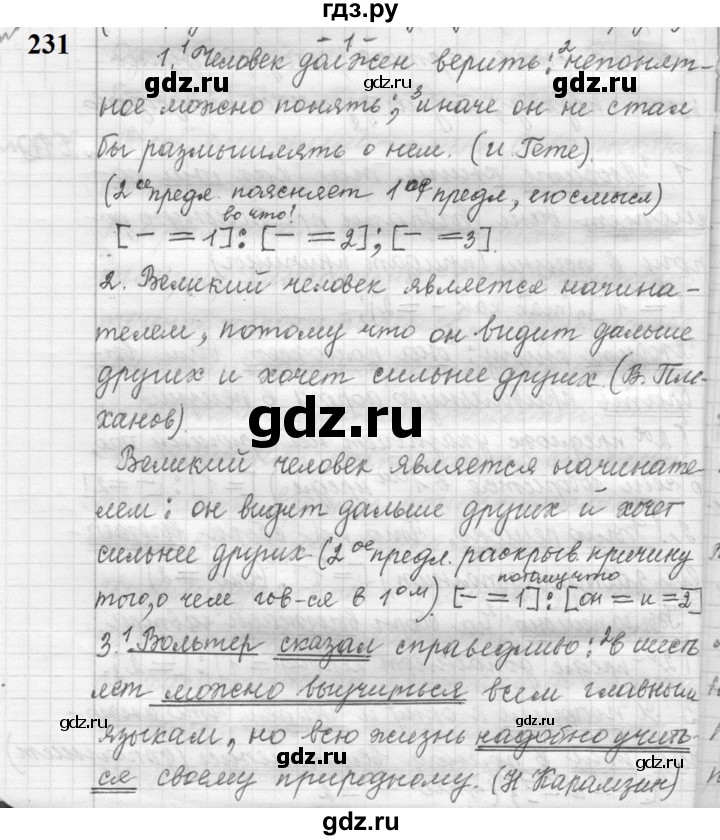 гдз.ру
231
1. ¹Человек должен верить: ²непонят-
ное можно понять; ³иначе он не стал
бы размышлять о нем. (И. Гете).
(2ое предл. поясняет 1ое предл, его смысл)
во что?
[— = 1]: [— = 2]; [— = 3].
2. Великий человек является начина-
телем, потому что он видит дальше
других и хочет сильнее других (В. Пле-
ханов).
Великий человек является начинате-
лем: он видит дальше других и хочет
сильнее других (2ое предл. раскрыв. причину
того, о чем гов-ся в 1ом). 
потому что
[— = 1]: [он = и = 2]
3. ¹Вольтер сказал справедливо: ²в шесть
лет можно выучиться всем главным
языкам, но всю жизнь надобно учить-
ся своему природному. (Н. Карамзин)
gdz.ru
gdz.ru
gdz.ru
gdz.ru
gdz.ru
gdz.ru
gdz.ru
gdz.ru